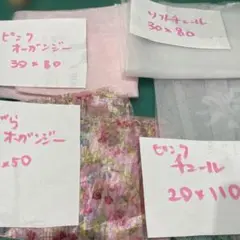 ピンク
オーガンジー
30×80
ソフトチュール
30×80
がら
オーガンジー
×50
ピンク
チュール
20×110